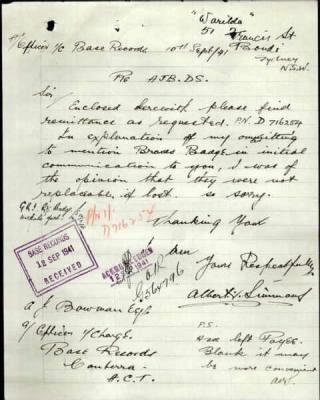 "Warilda"
51 Francis St
Bondi
Sydney
N.S.W.
Officer i/c Base Records 10th Sept/41
Re AJB.DS.
Sir
Enclosed herewith please find
remittance as requested. P.N. D 716254
In explanation of my ommitting
to mention Brass Badge in initial
communication to you, I was of
the opinion that they were not
replaceable if lost. so sorry.
Thanking You
D716254
BASE RECORDS
12 SEP 1941
RECEIVED
I am
Yours Respectfully
Albert V. Simmons
A J Bowman Esq
Officer i/Charge
Base Records
Canberra
A.C.T.
P.S.
left Payee
Blank it may
be more convenient